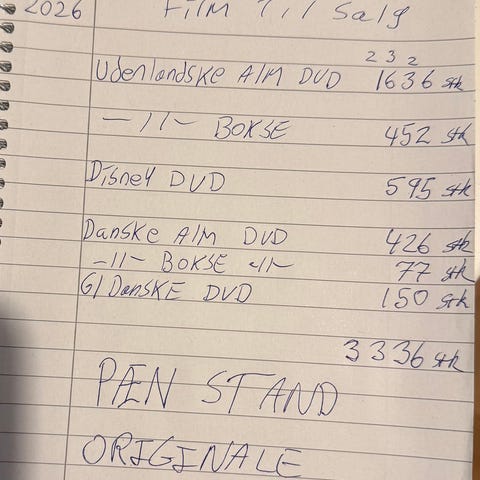 2026 Film Til Salg
2 3 2
Udenlandske Alm DVD 1636 stk
—//— BOKSE 452 stk
Disney DVD 595 stk
Danske Alm DVD 426 stk
—//— BOKSE —//— 77 stk
Gl Danske DVD 150 stk
3336 stk
PÆN STAND
ORIGINALE